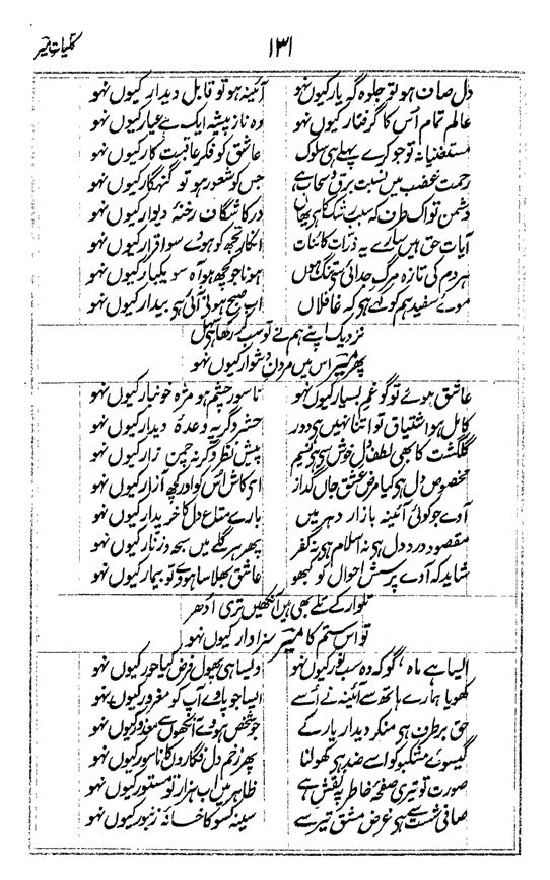 کلیاتِ میر
۱۳۱
دل صاف ہو تو جلوہ گہِ یار کیوں نہو آئینہ ہو تو قابلِ دیدار کیوں نہو
عالم تمام اُس کا گرفتار کیوں نہو وہ ناز پیشہ ایک ہے عیار کیوں نہو
مستغنیانہ تو جو کرے پہلے ہی سلوک عاشق کو فکرِ عاقبتِ کار کیوں نہو
رحمت غضب میں نسبتِ برق و سحاب ہے جس کو شعور ہو تو گنہگار کیوں نہو
دشمن تو اک طرف کہ سبب رشک کا ہے یھاں در کا شگاف و رخنۂ دیوار کیوں نہو
آیاتِ حق ہیں سارے یہ ذراتِ کائنات انکار تجھ کو ہووے سو اقرار کیوں نہو
ہر دم کی تازہ مرگِ جدائی سے تنگ ہوں ہونا جو کچھ ہو آہ سو یکبار کیوں نہو
موے سفید ہم کو کہے ہے کہ غافلاں اب صبح ہونے آئی ہے بیدار کیوں نہو
نزدیک اپنے ہم نے تو سب کر رکھا ہے سہل
پھر میر اس میں مردنِ دشوار کیوں نہو
عاشق ہوئے تو گو غمِ بسیار کیوں نہو ناسور چشم ہو مژہ خونبار کیوں نہو
کامل ہو اشتیاق تو اتنا نہیں ہے دور حشرِ دگر پہ وعدۂ دیدار کیوں نہو
گلگشت کا بھی لطف دلِ خوش سے ہے نسیم پیشِ نظر وگرنہ چمن زار کیوں نہو
مخصوص دل ہے کیا مرضِ عشقِ جاں گداز اے کاش اُس کو اور کچھ آزار کیوں نہو
آوے جو کوئی آئینہ بازار دہر میں بارے متاعِ دل کا خریدار کیوں نہو
مقصود دردِ دل ہے نہ اسلام ہے نہ کفر پھر ہر گلے میں سبحہ و زنار کیوں نہو
شاید کہ آوے پرسشِ احوال کو کبھو عاشق بھلا سا ہووے تو بیمار کیوں نہو
تلوار کے تلے بھی ہیں آنکھیں تری اُدھر
تو اس ستم کا میر سزاوار کیوں نہو
ایسا ہے ماہ، گو کہ وہ سب نور کیوں نہو ویسا ہی پھول فرض کیا حور کیوں نہو
کھویا ہمارے ہاتھ سے آئینہ نے اُسے ایسا جو پاوے آپ کو مغرور کیوں نہو
حق برطرف ہے منکرِ دیدارِ یار کے جو شخص ہووے آنکھوں سے معذور کیوں نہو
گیسوئے مشکبو کو اسے ضد ہے کھولنا پھر زخمِ دل فگاروں کا ناسور کیوں نہو
صورت تو تیری صفحۂ خاطر پہ نقش ہے ظاہر میں اب ہزار تو مستور کیوں نہو
صافی شست سے ہے غرض مشقِ تیر سے سینہ کسو کا خانۂ زنبور کیوں نہو